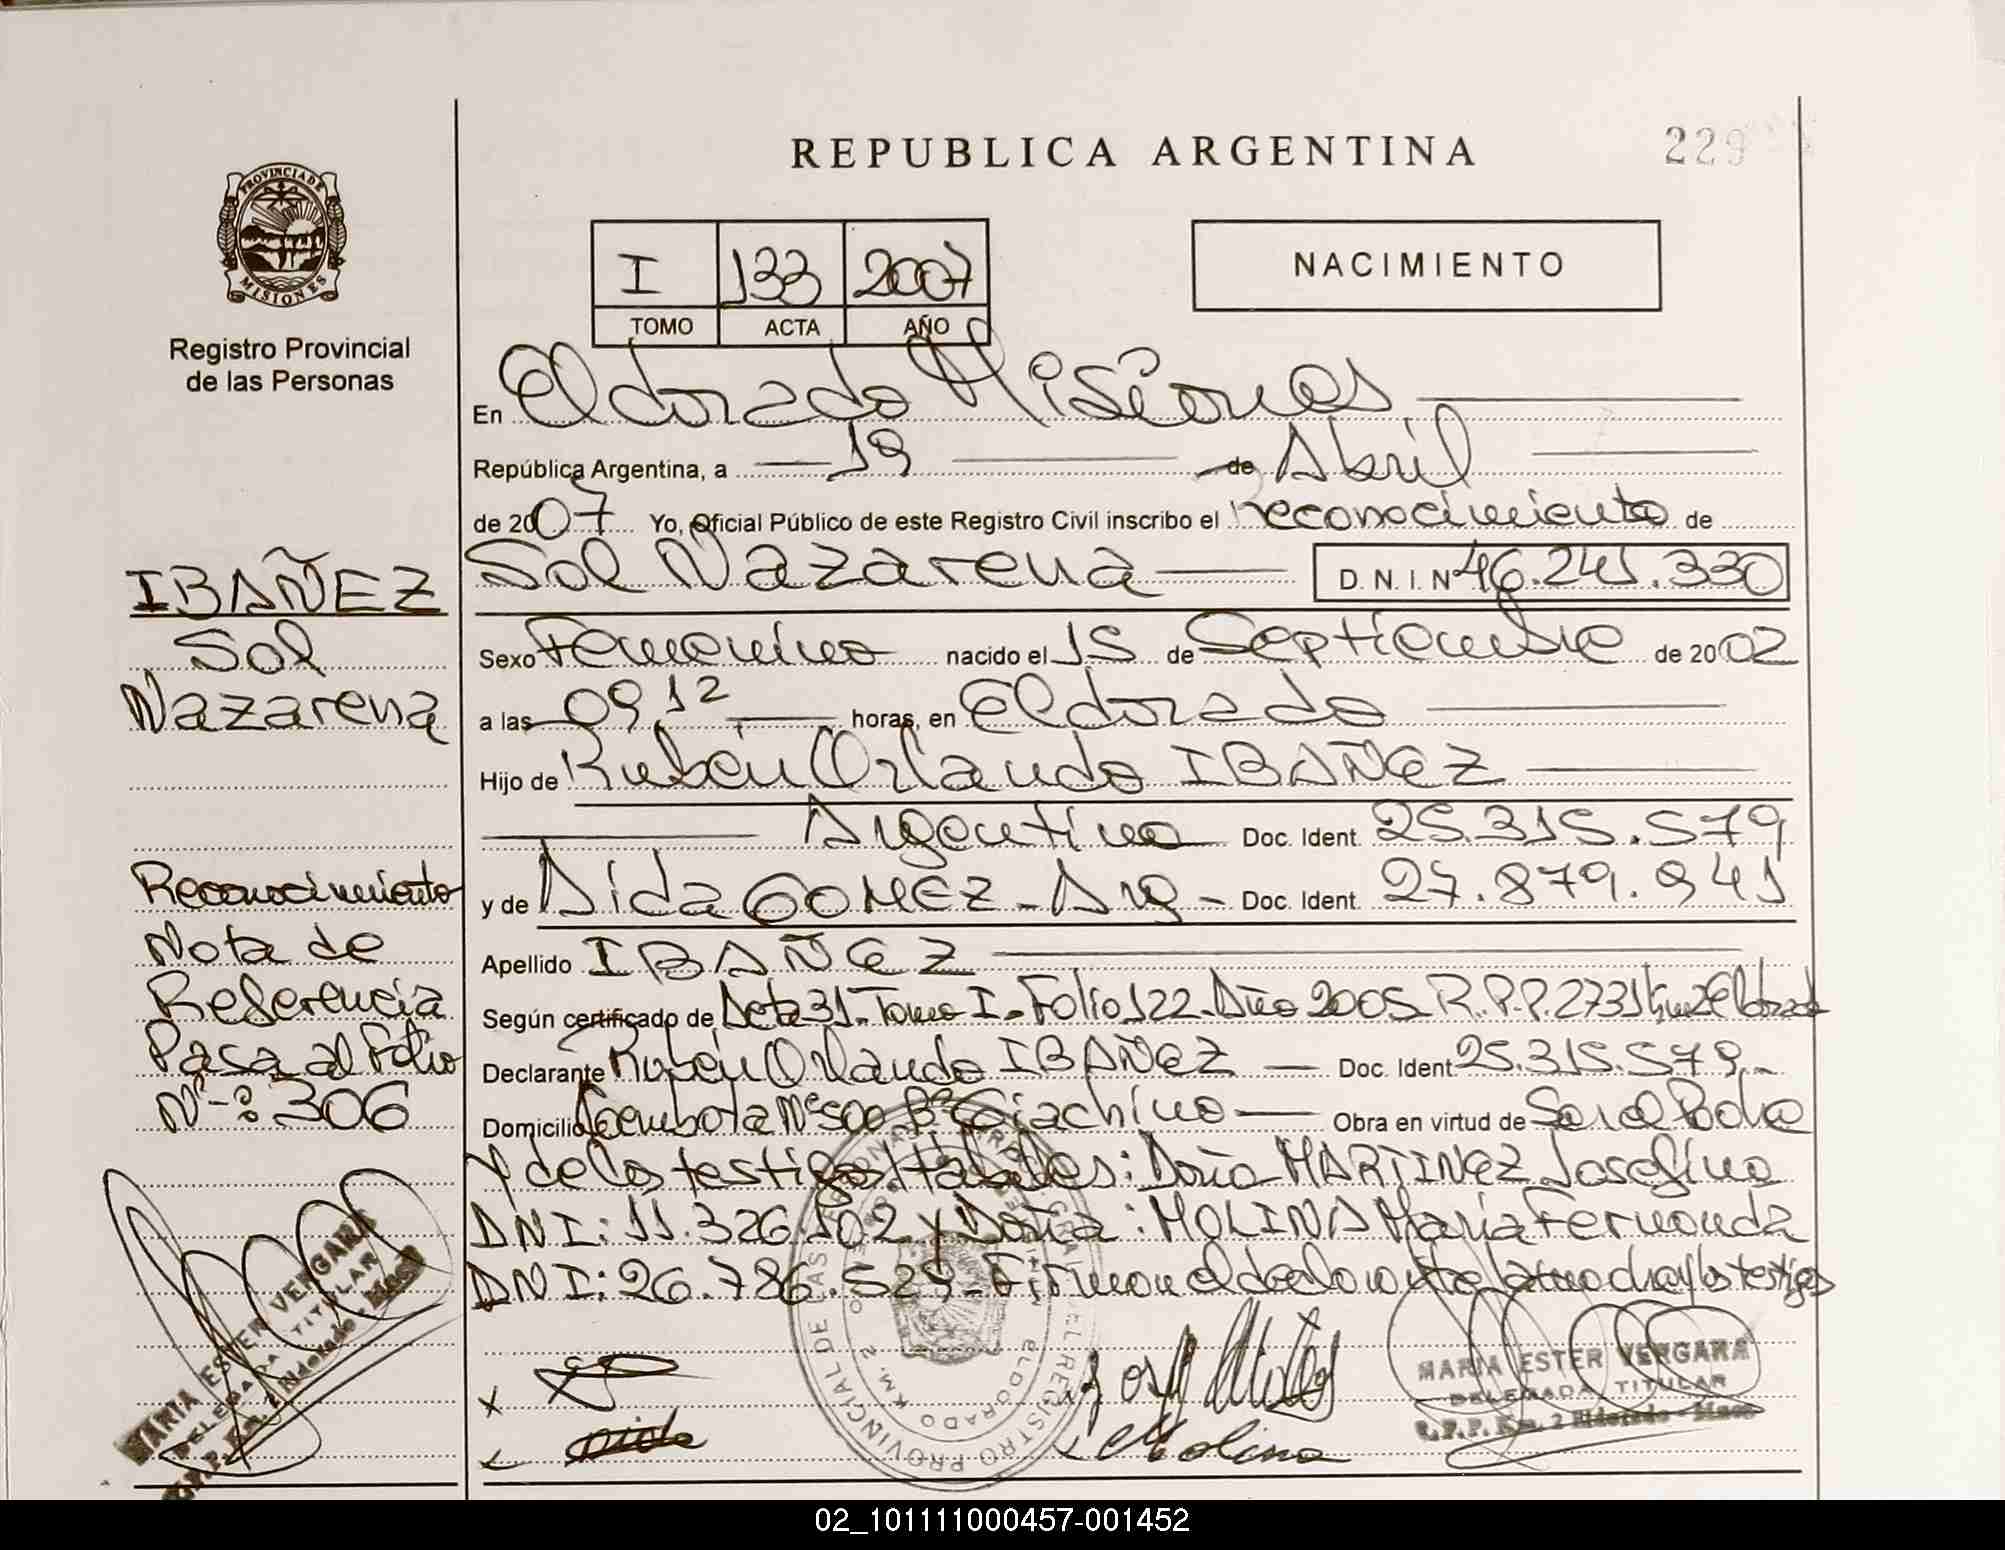 REPUBLICA ARGENTINA
229
PROVINCIA DE
MISIONES
Registro Provincial
de las Personas
I 133 2007
TOMO ACTA AÑO
NACIMIENTO
En Eldorado Misiones
República Argentina, a 19 de Abril
de 2007 Yo, Oficial Público de este Registro Civil inscribo el reconocimiento de
Sol Nazarena D.N.I. Nº 46.241.330
Sexo Femenino nacido el 15 de Septiembre de 2002
a las 09,12 horas, en Eldorado
Hijo de Rubén Orlando IBAÑEZ
Argentino Doc. Ident. 25.315.579
y de Aida GOMEZ - Arg - Doc. Ident. 27.879.941
Apellido IBAÑEZ
Según certificado de Acta 31 - Tomo I - Folio 122 - Año 2005 R.P.P. 2731 Km 2 Eldorado
Declarante Rubén Orlando IBAÑEZ Doc. Ident 25.315.579.-
Domicilio Nº 500 Bº Giachino Obra en virtud de Ser el Padre
Y de los testigos Habiles: Doña MARTINEZ Josefina
DNI: 11.326.102 y Doña: MOLINA María Fernanda
DNI: 26.786.529 - Firman el declarante la madre y los testigos
IBAÑEZ
Sol
Nazarena
Reconocimiento
Nota de
Referencia
Pasa al Folio
Nº 306
MARIA ESTER VERGARA
DELEGADA TITULAR
R.P.P. Km. 2 Eldorado - Mnes
x
Molina
MARIA ESTER VERGARA
DELEGADA TITULAR
R.P.P. Km. 2 Eldorado - Mnes
REGISTRO PROVINCIAL DE LAS PERSONAS
ELDORADO KM. 2
02_101111000457-001452